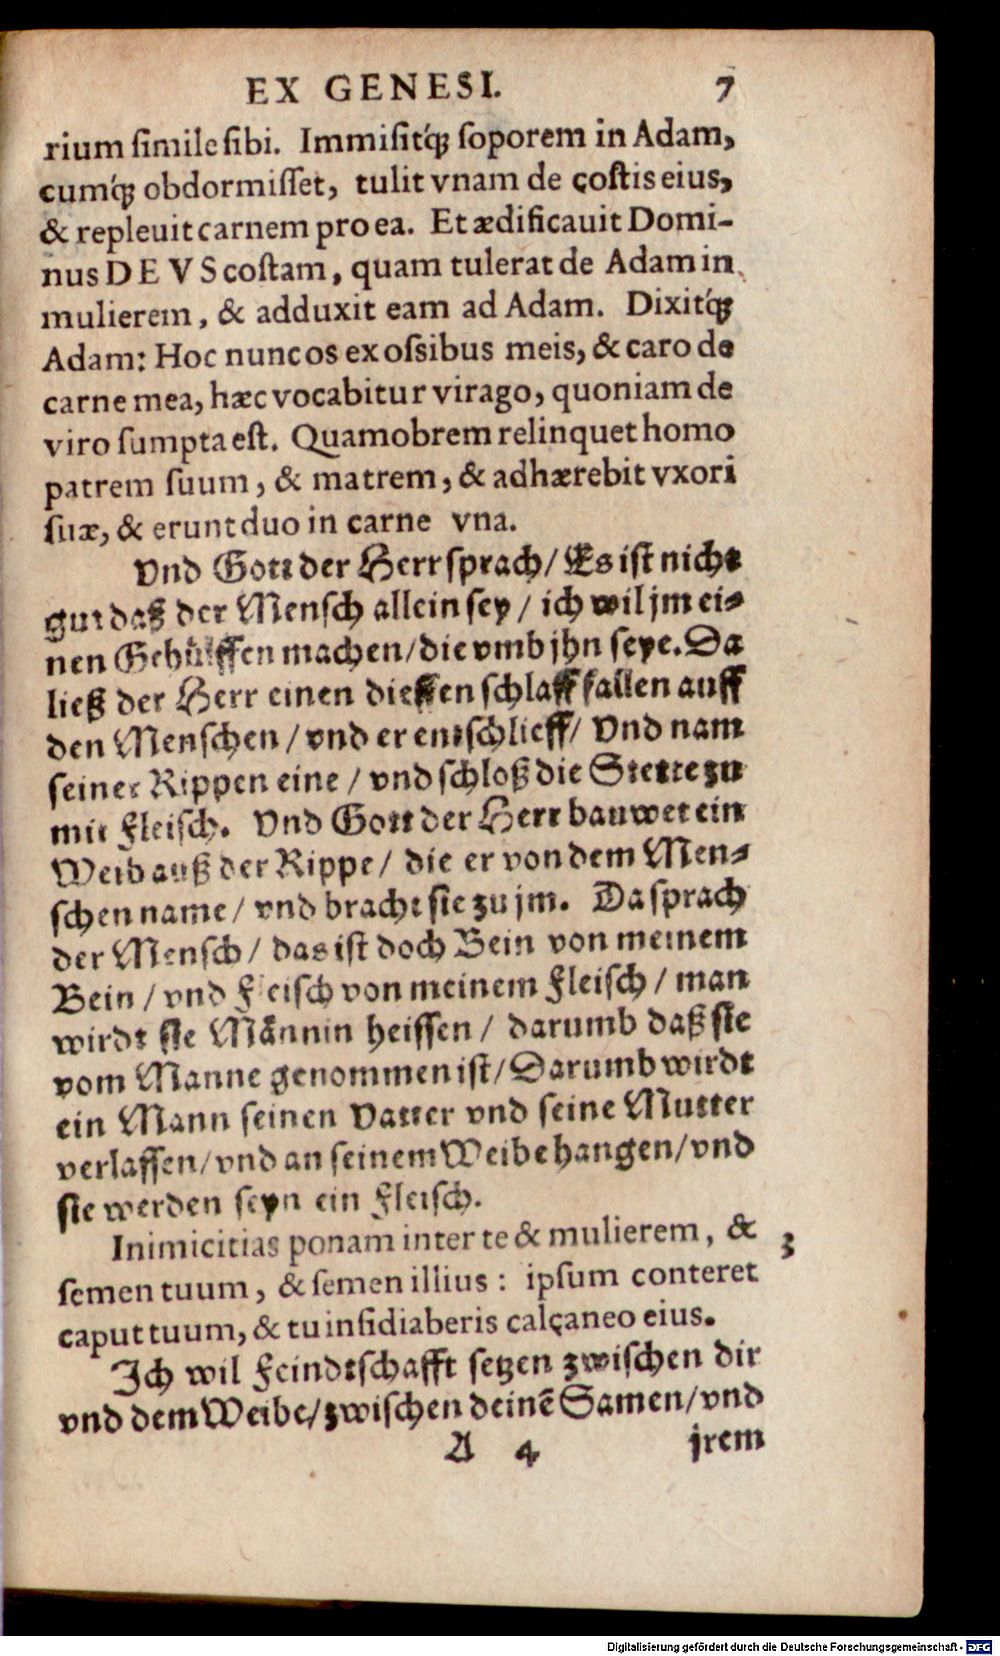 EX GENESI. 7
rium simile sibi. Immisitq́ꝫ soporem in Adam,
cumq́ꝫ obdormisset, tulit vnam de costis eius,
& repleuit carnem pro ea. Et ædificauit Domi-
nus DEVS costam, quam tulerat de Adam in
mulierem, & adduxit eam ad Adam. Dixitq́ꝫ
Adam: Hoc nunc os ex ossibus meis, & caro de
carne mea, hæc vocabitur virago, quoniam de
viro sumpta est. Quamobrem relinquet homo
patrem suum, & matrem, & adhærebit vxori
suæ, & erunt duo in carne vna.
Vnd Gott der Herr sprach/ Es ist nicht
gut daß der Mensch allein sey/ ich wil jm ei-
nen Gehülffen machen/ die vmb jhn seye. Da
ließ der Herr einen dieffen schlaff fallen auff
den Menschen/ vnd er entschlieff/ Vnd nam
seiner Rippen eine/ vnd schloß die Stette zu
mit Fleisch. Vnd Gott der Herr bauwet ein
Weib auß der Rippe/ die er von dem Men-
schen name/ vnd bracht sie zu jm. Da sprach
der Mensch/ das ist doch Bein von meinem
Bein/ vnd Fleisch von meinem Fleisch/ man
wirdt sie Männin heissen/ darumb daß sie
vom Manne genommen ist/ Darumb wirdt
ein Mann seinen Vatter vnd seine Mutter
verlassen/ vnd an seinem Weibe hangen/ vnd
sie werden seyn ein Fleisch.
Inimicitias ponam inter te & mulierem, & 3
semen tuum, & semen illius: ipsum conteret
caput tuum, & tu insidiaberis calcaneo eius.
Ich wil Feindtschafft setzen zwischen dir
vnd dem Weibe/ zwischen deinē Samen/ vnd
A 4 jrem
Digitalisierung gefördert durch die Deutsche Forschungsgemeinschaft - DFG